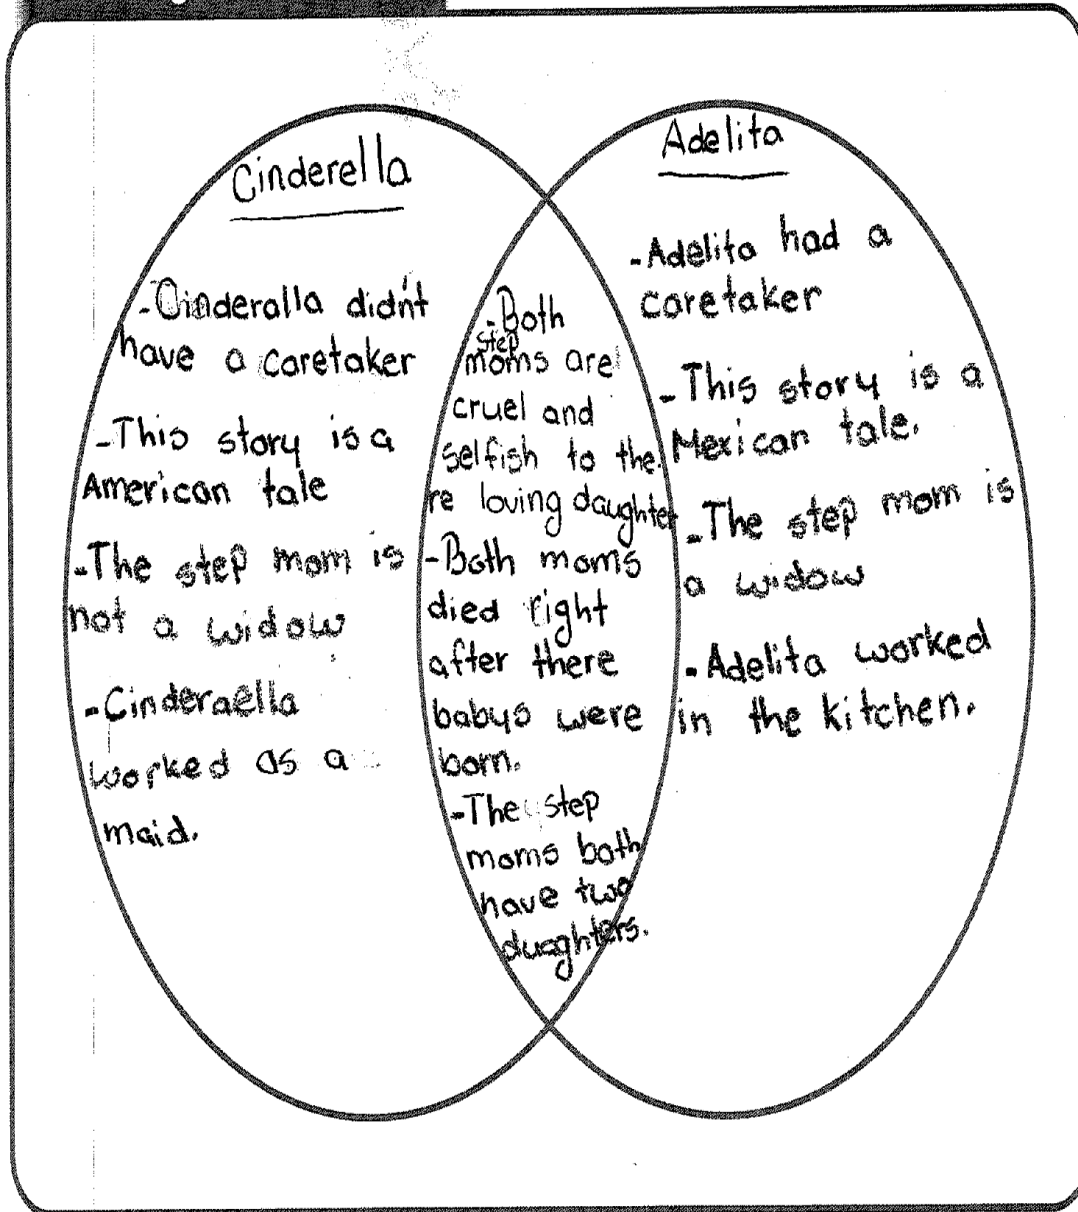 Cinderella
-Cinderalla didn't
have a caretaker
-This story is a
American tale
-The step mom is
not a widow
-Cinderaella
worked as a
maid.
-Both
step
moms are
cruel and
selfish to the
re loving daughter
-Both moms
died right
after there
babys were
born.
-The step
moms both
have two
duaghters.
Adelita
-Adelita had a
caretaker
-This story is a
Mexican tale.
-The step mom is
a widow
-Adelita worked
in the kitchen.